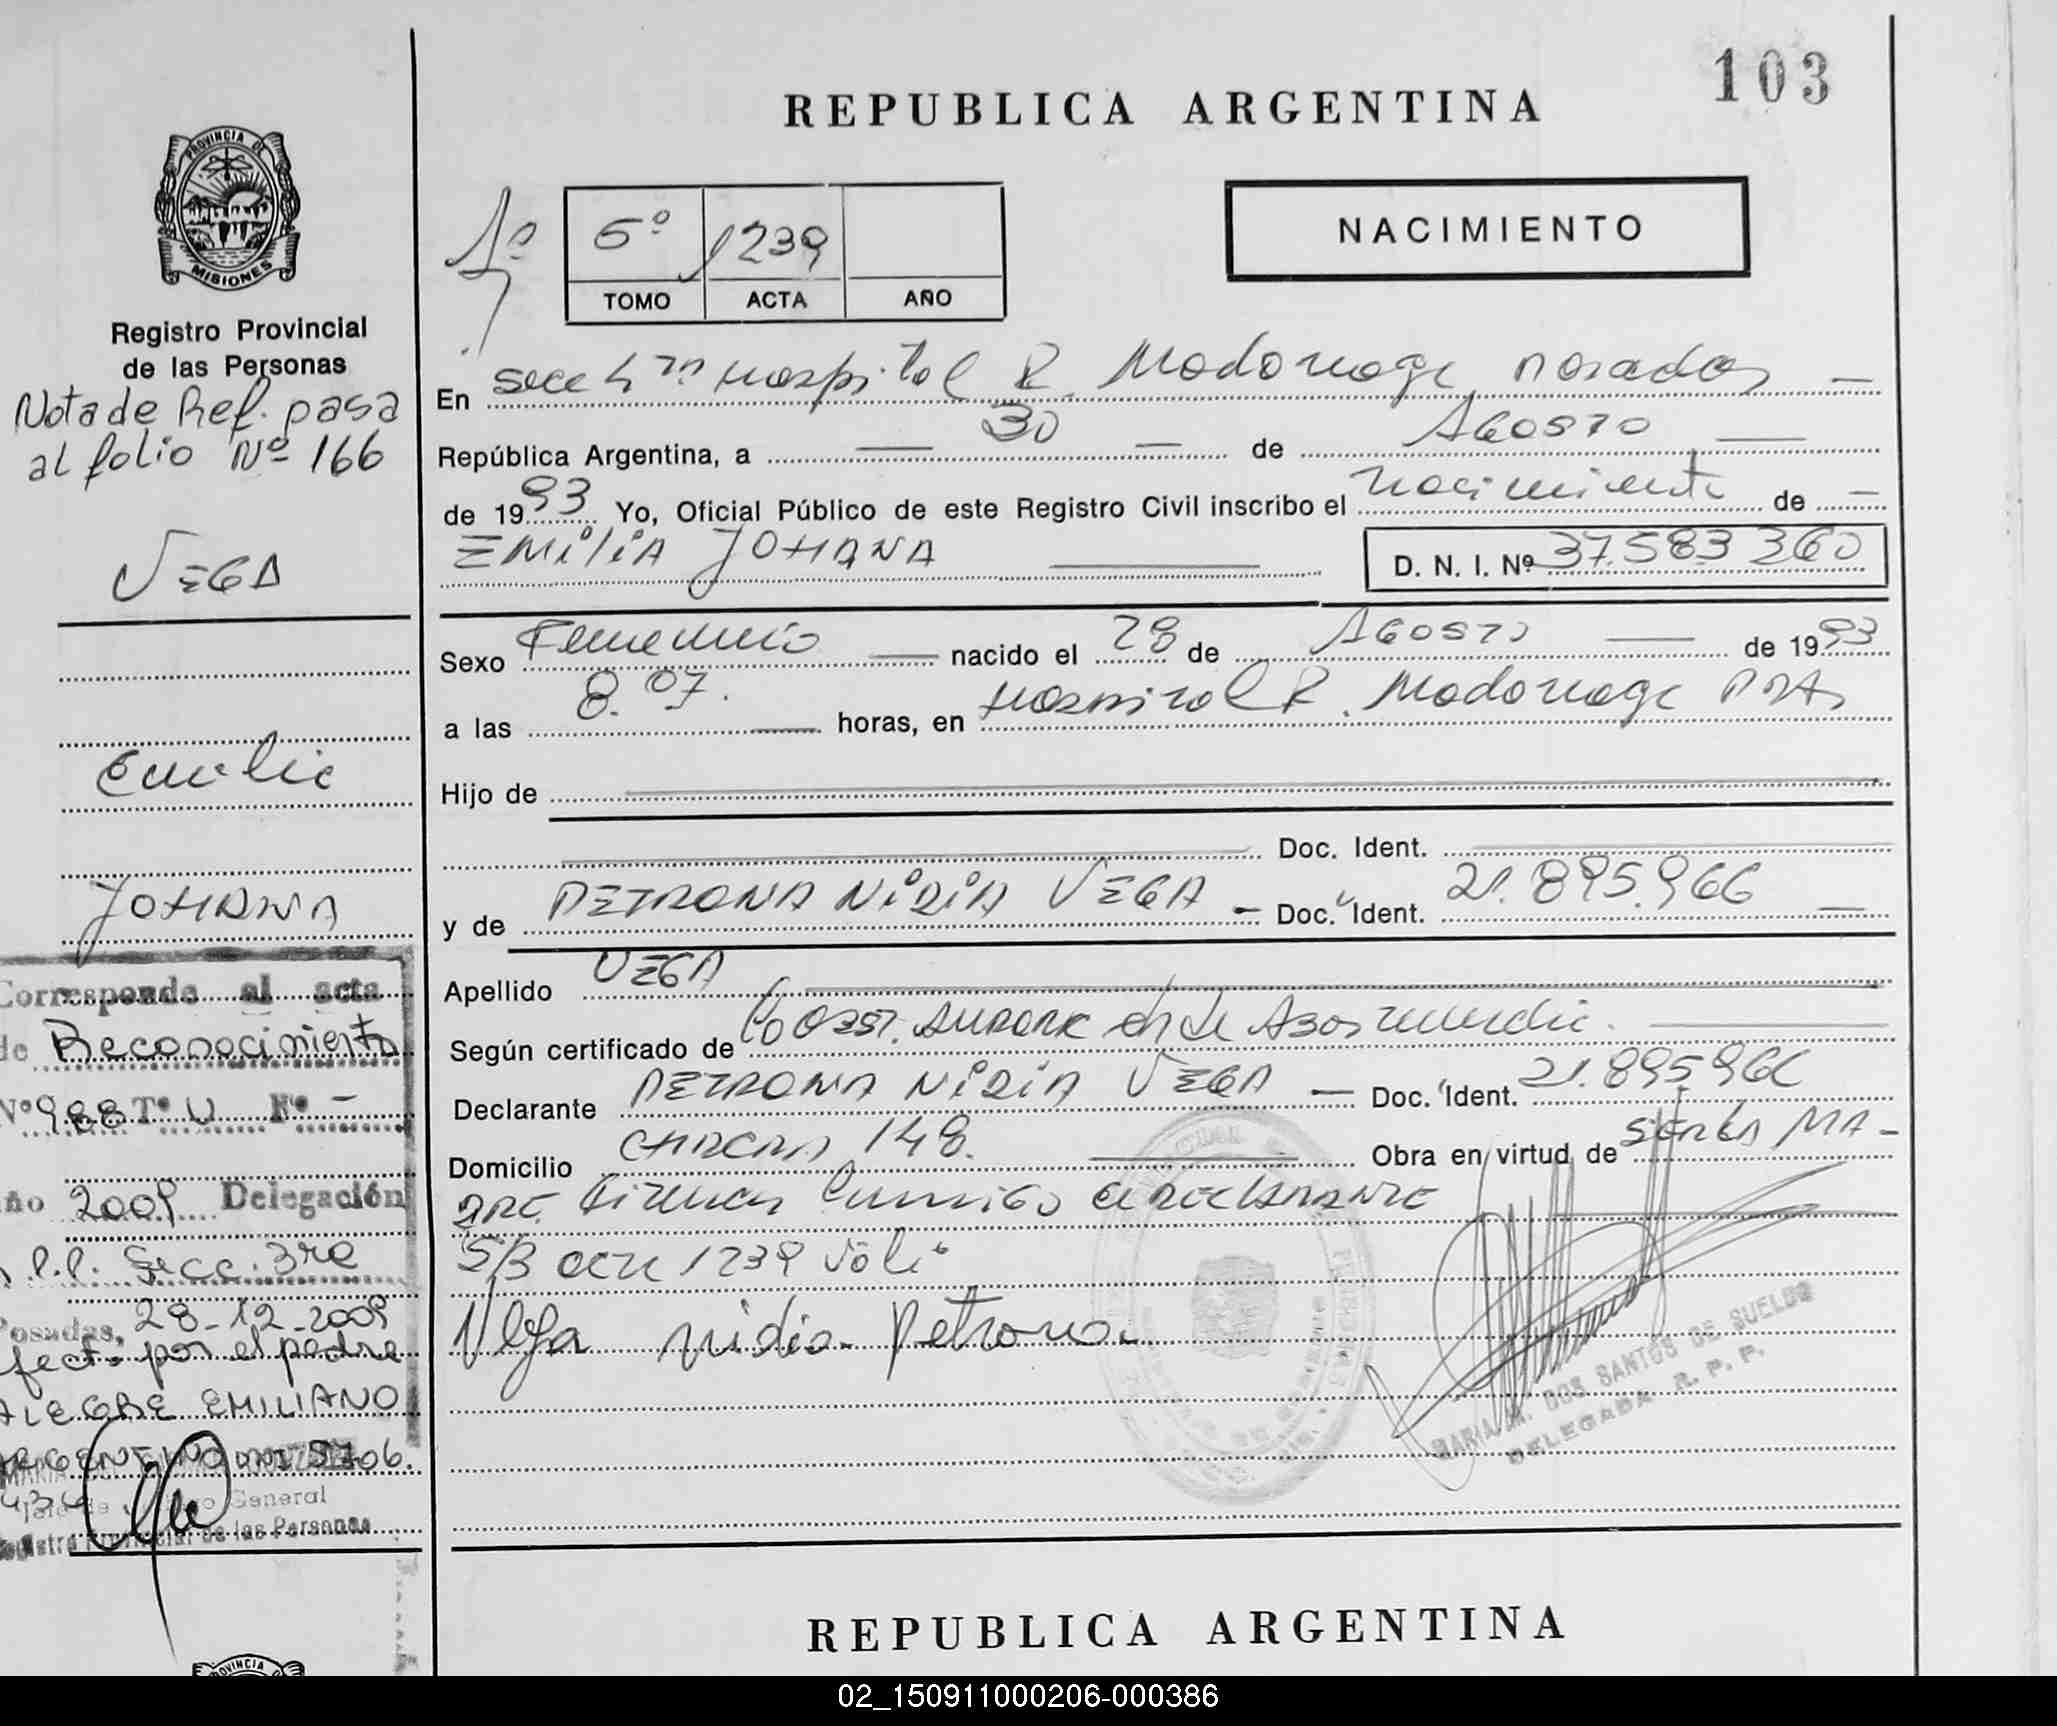 103
REPUBLICA ARGENTINA
PROVINCIA DE
MISIONES
Registro Provincial
de las Personas
Nota de Ref. pasa
al folio Nº 166
VEGA
Emilia
JOHANA
Corresponde al acta
de Reconocimiento
Nº 988 Tº U Fº -
año 2009 Delegación
Secc. 3ra
Posadas, 28-12-2009
por el padre
ALEGRE EMILIANO
ARGENTINO DNI
General
Registro Provincial de las Personas
1º
5º 1239
TOMO ACTA AÑO
NACIMIENTO
En Secc 4ta Hospital R. Madariaga Posadas —
República Argentina, a — 30 — de AGOSTO —
de 1993 Yo, Oficial Público de este Registro Civil inscribo el nacimiento de —
EMILIA JOHANA —
D. N. I. Nº 37.583 360
Sexo Femenino — nacido el 28 de AGOSTO — de 1993
a las 8.07. — horas, en Hospital R. Madariaga PDAS
Hijo de
Doc. Ident.
y de PETRONA NIDIA VEGA - Doc. Ident. 21.895.966
Apellido VEGA
Según certificado de
Declarante PETRONA NIDIA VEGA — Doc. Ident. 21.895 966
Domicilio CHACRA 148. — Obra en virtud de SER LA MA-
DRE. Firman conmigo el DECLARANTE
S/B acta 1239 Vale
Vega nidia Petrona
MARIA M. DOS SANTOS DE SUELDO
DELEGADA R. P. P.
PROVINCIA DE
REPUBLICA ARGENTINA
02_150911000206-000386